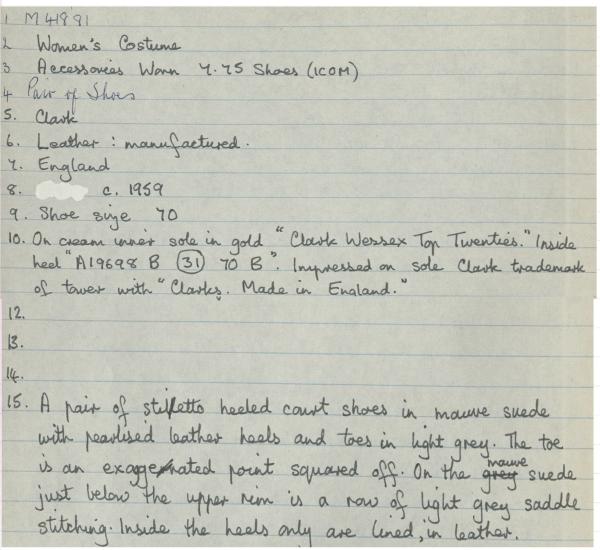 1 M41891
2 Women's Costume
3 Accessories Worn 7.75 Shoes (ICOM)
4 Pair of Shoes
5. Clark
6. Leather : manufactured.
7. England
8. c. 1959
9. Shoe size 70
10. On cream inner sole in gold "Clark Wessex Top Twenties." Inside
heel "A19698 B (31) 70 B". Impressed on sole Clark trademark
of tower with "Clarks. Made in England."
12.
13.
14.
15. A pair of stiletto heeled court shoes in mauve suede
with pearlised leather heels and toes in light grey. The toe
is an exaggerated point squared off. On the grey mauve suede
just below the upper rim is a row of light grey saddle
stitching. Inside the heels only are lined, in leather.